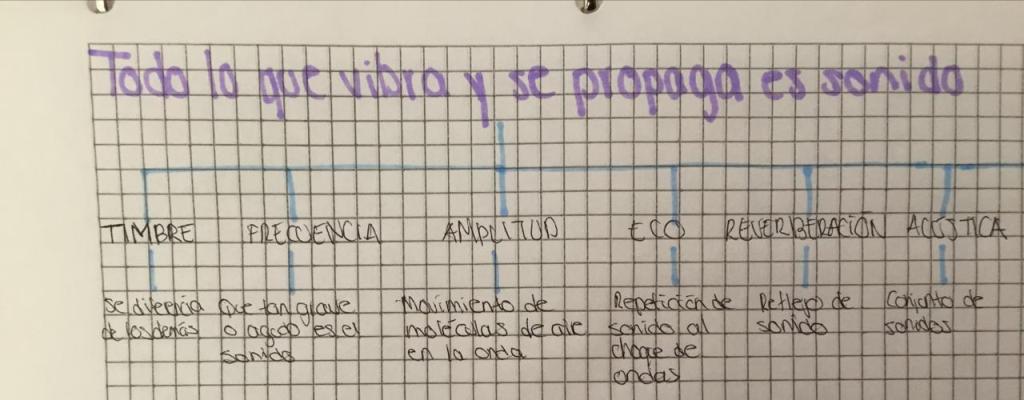 Todo lo que vibra y se propaga es sonido
TIMBRE FRECUENCIA AMPLITUD ECO REVERBERACIÓN ACÚSTICA
Se diferencia
de los demás
Que tan grave
o agudo es el
sonido
Movimiento de
moléculas de aire
en la onda
Repetición de
sonido al
choque de
ondas
Reflejo de
sonido
Conjunto de
sonidos